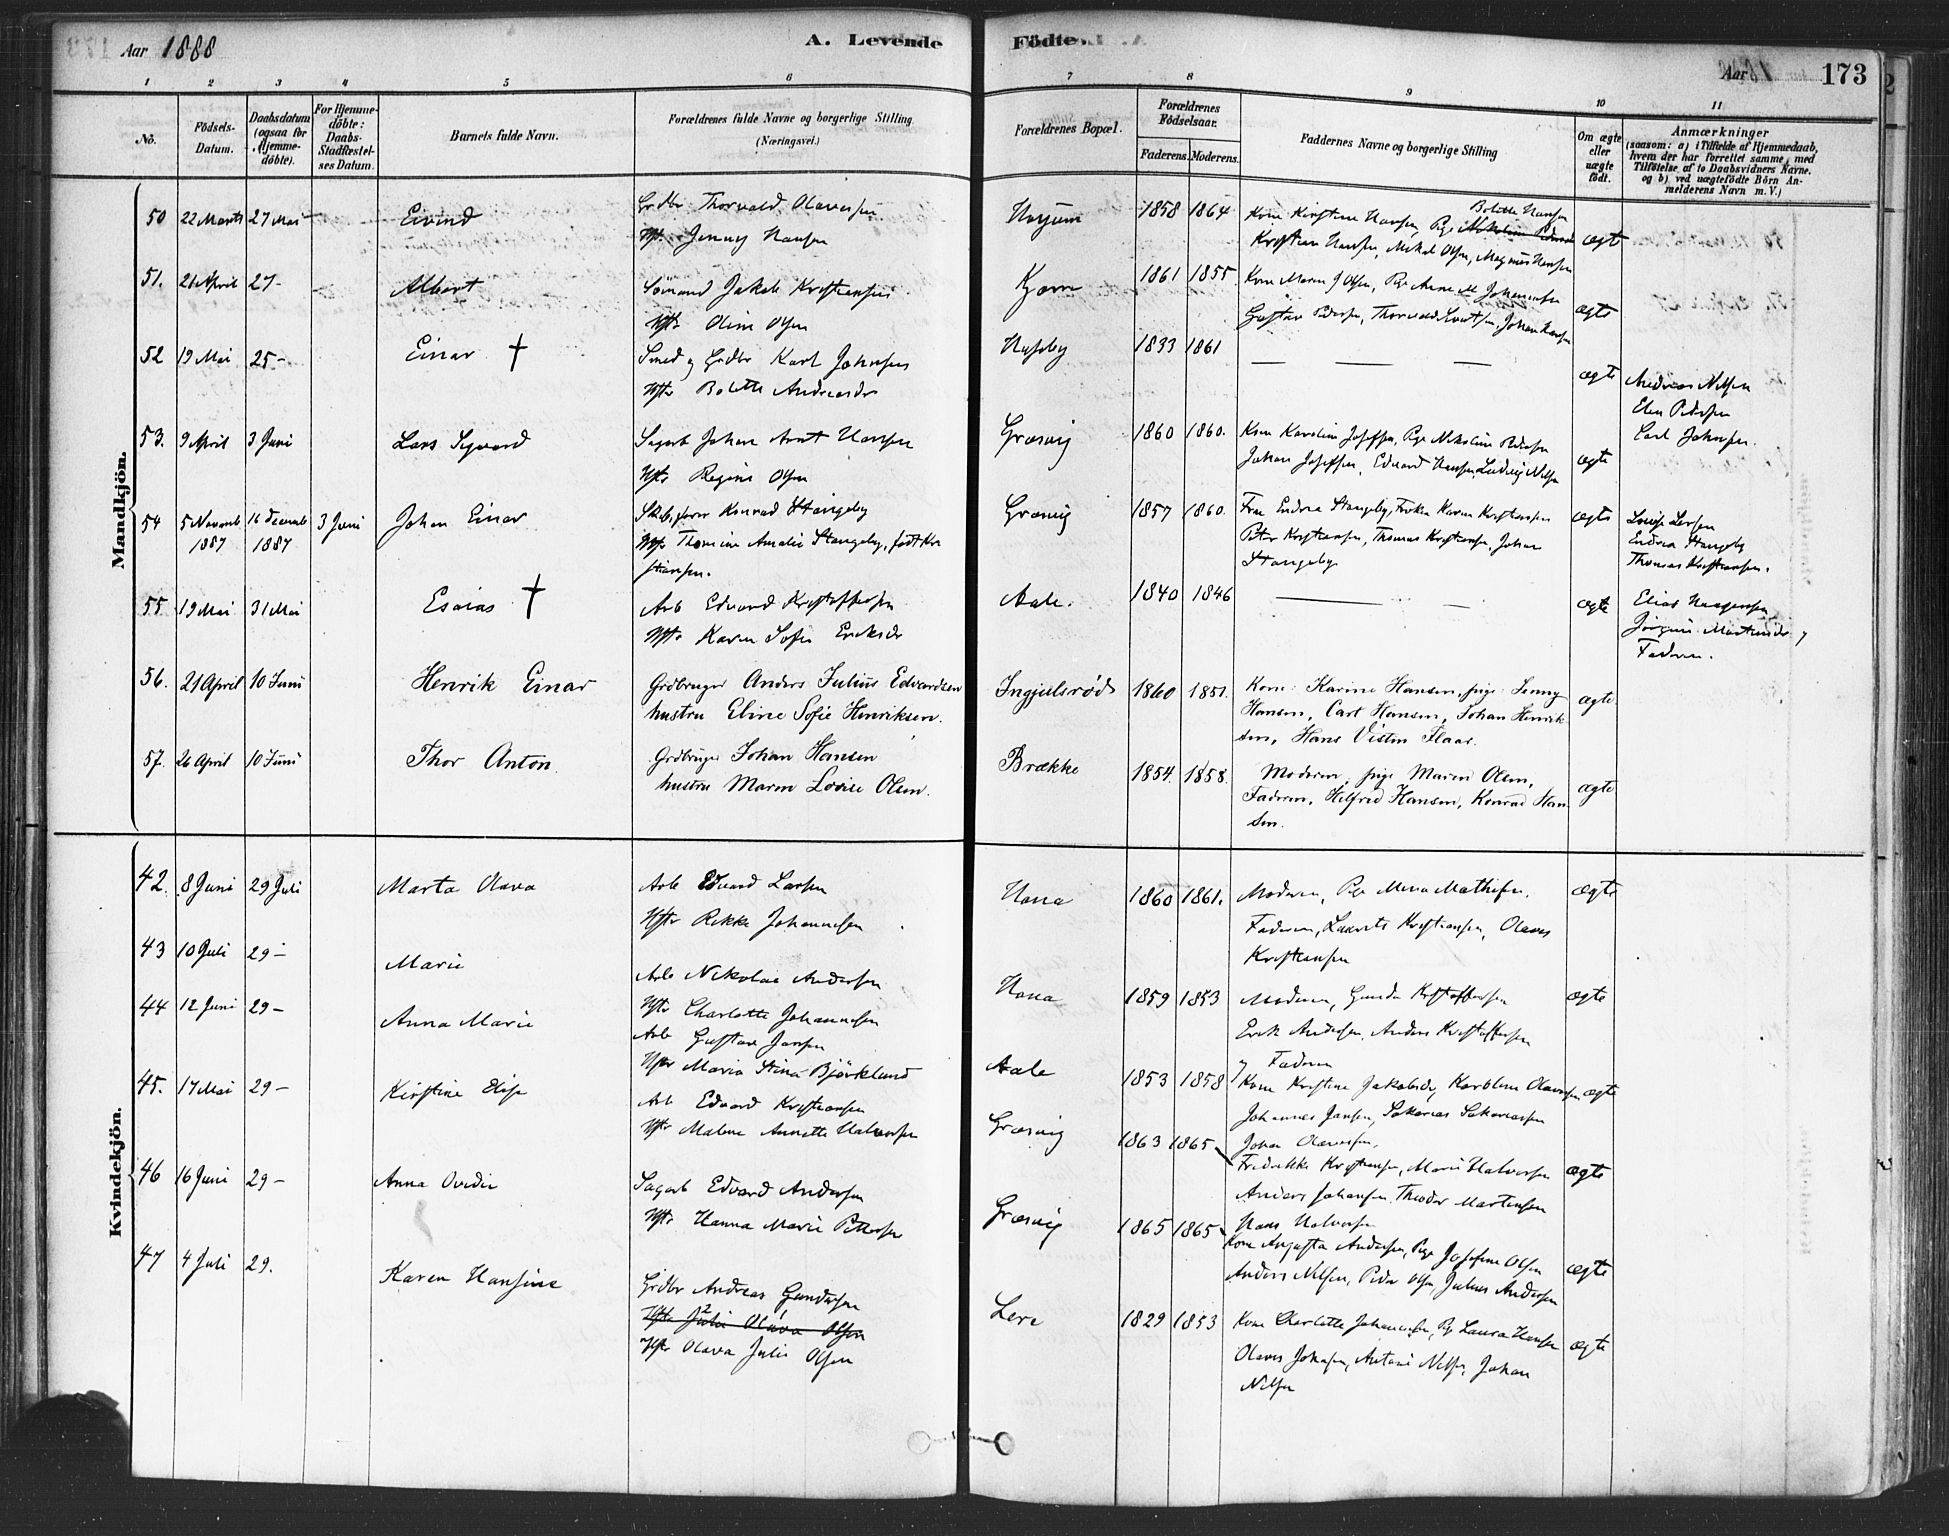 Aar 1888
A. Levende Födte.
Aar 173
1 2 3 4 5 6 7 8 9 10 11
No.
Födsels-Datum.
Daabsdatum (ogsaa for Hjemmedöbte).
For Hjemmedöbte: Daabs-Stadfæstelses Datum.
Barnets fulde Navn.
Forældrenes fulde Navne og borgerlige Stilling (Næringsvei.)
Forældrenes Bopæl.
Forældrenes Födselsaar.
Faderens. Moderens.
Faddernes Navne og borgerlige Stilling
Om ægte eller uægte födt.
Anmærkninger
(saasom: a) i Tilfælde af Hjemmedaab, hvem der har forrettet samme, med Tilföielse af to Daabsvidners Navne. og b) ved uægtefödte Börn Anmelderens Navn m. V.)
Mandkjön.
50 22 Marts 27 Mai Eivind Grdbr Thorvald Olavesen 1858 1864 Kone Kirstine Hansen, Pige Bolette Hansen ægte
Hst. Jenny Hansen
Kristian Hansen, Mikal Olsen, Magnus Hansen
51. 21 April 27 - Albert Sömand Jakob Kristiansen Kjærn 1861 1855 Kone Maren J Olsen, Pige Anne M Johannesen ægte
Hst. Oline Olsen
Gustav Pedersen, Thorvald
52 19 Mai 25 - Einar † Smed og Grdbr Karl Johnsen Huseby 1833 1861 — — — ægte Andreas Nilsen
Hstr Bolette Andreasdr
Elen Pedersen
Carl Johnsen.
53. 9 April 3 Juni Lars Sigvard Sagarb Johan Arnt Hansen Græsvig 1860 1860. Kone Karoline Josefsen, Pige Nikoline Pedersen ægte
Hstr Regine Olsen
Johan Josefsen, Edvard Hansen, Ludvig Nilsen
54 5 Novemb 1887 16 Decemb 1887 3 Juni Johan Einar Konrad Stangeby Græsvig 1857 1860. Fru Endrea Stangeby, Frøken Karen Kristiansen ægte
Hstr Thomine Amalie Stangeby, født Kristiansen.
Peter Kristiansen, Thomas Kristiansen, Johan Stangeby
Lovise Larsen
Endrea Stangeby
Thomas Kristiansen.
55 19 Mai 31 Mai Esaias † Arb Edvard Kristoffersen Aale. 1840 1846 — — ægte Elias Haagensen
Hstr Karen Sofie Eriksdr
Jørgine Martinsdr og
Faderen.
56. 21 April 10 Juni Henrik Einar Grdbruger Anders Julius Edvardsen Ingjelsrød 1860 1851. Kone: Karine Hansen, pige: Jenny ægte
hustru Eline Sofie Henriksen.
Hansen, Carl Hansen, Johan Henriksen, Hans Flaar.
57. 26 April 10 Juni Thor Anton. Grdbruger Johan Hansen Brække 1854. 1858. Moderen, pige Maren Olsen, ægte
hustru Maren Lovise Olsen.
Faderen, Hilfred Hansen, Konrad Hansen.
Kvindekjön.
42. 8 Juni 29 Juli Marta Olava Arb Edvard Larsen Hona 1860 1861. Moderen, Pige Mina Mathisen. ægte
Hstr Rikke Johannesen
Faderen, Laurits Kristiansen, Olaves Kristiansen
43 10 Juli 29 - Marie Arb Nikolai Andersen Hona 1859 1853 Moderen, Gunda Kristoffersen ægte
Hstr Charlotte Johannesen
Erik Andersen, Anders Kristoffersen
og Faderen
44 12 Juni 29 - Anna Marie Arb Gustav Jansen Aale 1853 1858 Kone Kristine Jakobsdr, Karoline Olavesen ægte
Hstr Maria Stina Björklund
Johannes Jansen, Sakarias Sakariassen
Johan Olavesen.
45. 17 Mai 29 - Kirstine Elise Arb Edvard Kristiansen Græsvig 1863 1865 Fredrikke Kristiansen, Marie Halvorsen ægte
Hstr Malene Annette Halvorsen
Anders Johansen. Theodor Martinsen
Hans Halvorsen
46 16 Juni 29 - Anna Ovidie Sagarb Edvard Andersen Græsvig 1865 1865 Kone Augusta Andersen, Pige Josefine Olsen ægte
Hstr Hanna Marie Pettersen
Anders Nilsen, Peder Olsen, Julius Andersen
47 4 Juli 29. Karen Hansine Grdbr Andreas Gundersen Lere 1829 1853 Kone Charlotte Johannesen, Pige Laura Hansen ægte
Hstr Julie Olava Olsen
Hstr Olava Julie Olsen
Olaves Johnsen, Antoni Nilsen, Johan Nilsen